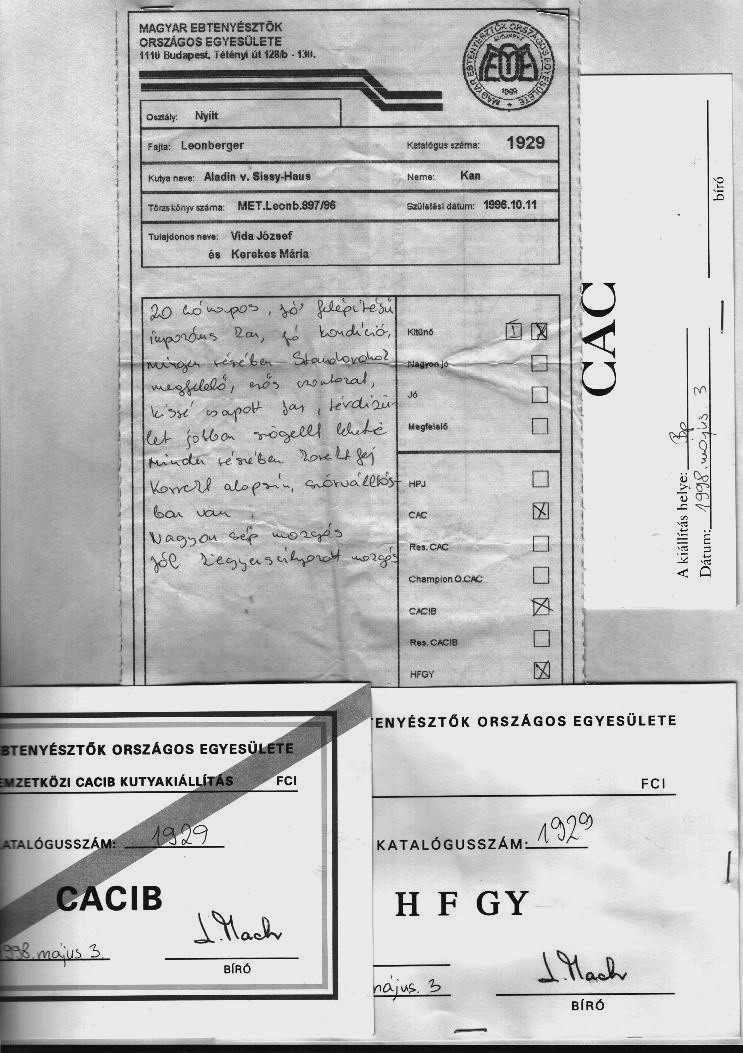 MAGYAR EBTENYÉSZTŐK
ORSZÁGOS EGYESÜLETE
1116 Budapest, Tétényi út 128/b - 130.
MAGYAR EBTENYÉSZTŐK ORSZÁGOS EGYESÜLETE
BUDAPEST
MEOE
Osztály: Nyílt
Fajta: Leonberger Katalógus száma: 1929
Kutya neve: Aladin v. Sissy-Haus Neme: Kan
Törzskönyv száma: MET.Leonb.897/96 Születési dátum: 1996.10.11
Tulajdonos neve: Vida József
és Kerekes Mária
20 hónapos, jó felépítésű
impozáns kan, jó kondíció,
minden részében Standardnak
megfelelő, erős csontozat,
kissé csapott far, térdízü-
let jobban szögellt lehetne
minden részében korrekt fej
Korrekt alapszín, szőrváltás-
ban van.
Nagyon szép mozgás
jól kiegyensúlyozott mozgás
Kitűnő 1 X
Nagyon jó
Jó
Megfelelő
HPJ
CAC X
Res. CAC
Champion O.CAC
CACIB X
Res. CACIB
HFGY X
CAC
A kiállítás helye: Bp
Dátum: 1998. május 3
bíró
EBTENYÉSZTŐK ORSZÁGOS EGYESÜLETE
EMZETKÖZI CACIB KUTYAKIÁLLÍTÁS FCI
KATALÓGUSSZÁM: 1929
CACIB
1998. május 3.
L. Mach
BÍRÓ
TENYÉSZTŐK ORSZÁGOS EGYESÜLETE
FCI
KATALÓGUSSZÁM: 1929
HFGY
május. 3
L. Mach
BÍRÓ